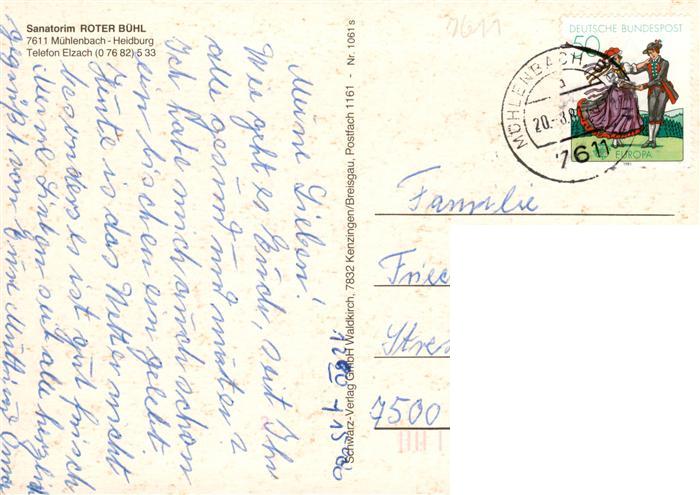 Sanatorim ROTER BÜHL
7611 Mühlenbach - Heidburg
Telefon Elzach (0 76 82) 5 33
Meine Lieben!
Wie geht es Euch, seit Ihr
alle gesund und munter?
Ich habe mich auch schon
ein bischen eingelebt
Heute ist das Wetter nicht
besonders es ist gut frisch
Meine Lieben seit alle herzlich
gegrüßt von Eure Mutti und Oma
Schwarz-Verlag GmbH Waldkirch, 7832 Kenzingen/Breisgau, Postfach 1161 - Nr. 1061 s
7611
DEUTSCHE BUNDESPOST
50
EUROPA
MÜHLENBACH
20.-3.8
7611
Familie
Fried
Stre
7500